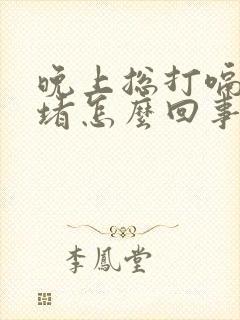 晚上总打嗝
堵怎麽回事
李鳳堂